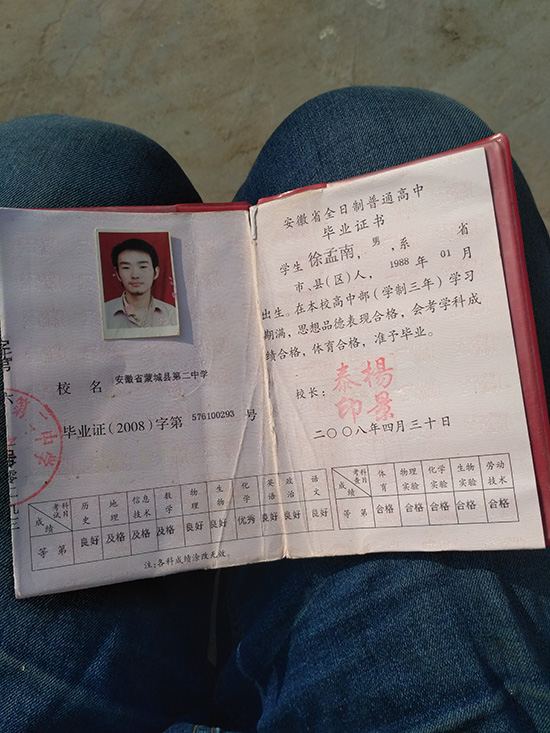 校名 安徽省蒙城县第二中学
毕业证(2008)字第 576100293 号
考查科目 成绩 历史 地理 信息技术 数学 物理 生物 化学 英语 政治 语文
等第 良好 及格 及格 及格 良好 良好 优秀 良好 良好 良好
注:各科成绩涂改无效。
安徽省全日制普通高中
毕业证书
学生 徐孟南,男,系 省
市、县(区)人,1988 年 01 月
出生。在本校高中部(学制三年)学习
期满,思想品德表现合格,会考学科成
绩合格,体育合格,准予毕业。
校长:
楊景泰印
二〇〇八年四月三十日
考查科目 成绩 体育 物理实验 化学实验 生物实验 劳动技术
等第 合格 合格 合格 合格 合格